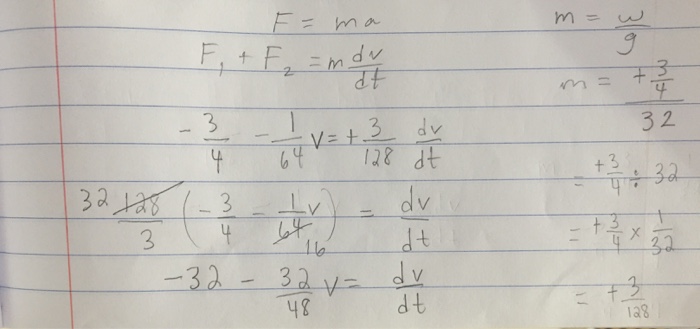 F = ma
F₁ + F₂ = m dv/dt
- 3/4 - 1/64 v = + 3/128 dv/dt
32 128/3 ( - 3/4 - 1/64 v ) = dv/dt
16
-32 - 32/48 v = dv/dt
m = w/g
m = + 3/4 / 32
= + 3/4 ÷ 32
= + 3/4 × 1/32
= + 3/128